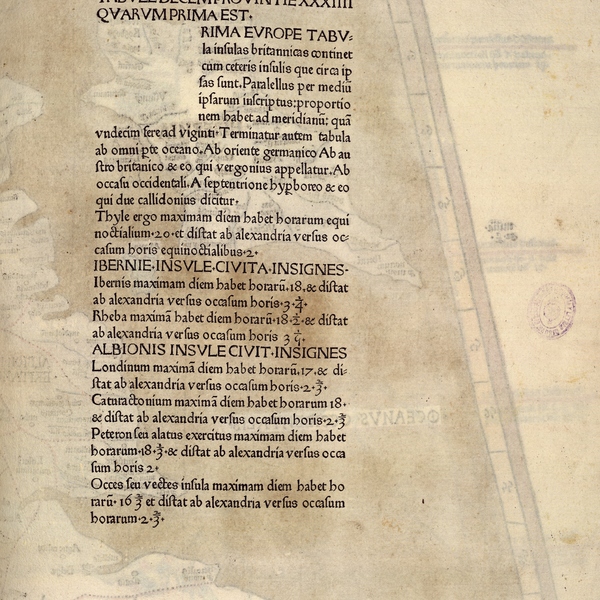 TABVLE DECEM PROVINTIE XXXIIII
QVARVM PRIMA EST·
RIMA EVROPE TABV-
la insulas britannicas continet
cum ceteris insulis que circa ip
sas sunt. Paralellus per mediū
ipsarum inscriptus: proportio
nem habet ad meridianū: quā
vndecim fere ad viginti· Terminatur autem tabula
ab omni pte oceano. Ab oriente germanico Ab au
stro britanico & eo qui vergonius appellatur. Ab
occasu occidentali. A septentrione hypboreo & eo
qui due callidonius dicitur·
Thyle ergo maximam diem habet horarum equi
noctialium·20·et distat ab alexandria versus oc-
casum horis equinoctialibus·2·
IBERNIE·INSVLE·CIVITA·INSIGNES·
Ibernis maximam diem habet horarū·18·& distat
ab alexandria versus occasum horis·3·1/4·
Rheba maximā habet diem horarū·18·1/2·& distat
ab alexandria versus occasum horis 3
ALBIONIS INSVLE CIVIT·INSIGNES
Londinum maximā diem habet horarū·17·& di-
stat ab alexandria versus occasum horis·2·2/3·
Caturactonium maximā diem habet horarum 18·
& distat ab alexandria versus occasum horis·2·2/3
Peteron seu alatus exercitus maximam diem habet
horarum·18·2/3·& distat ab alexandria versus occa
sum horis 2·
Occes seu vectes insula maximam diem habet ho
rarū·16 2/3 et distat ab alexandria versus occasum
horarum·2·2/3·
OCEANVS